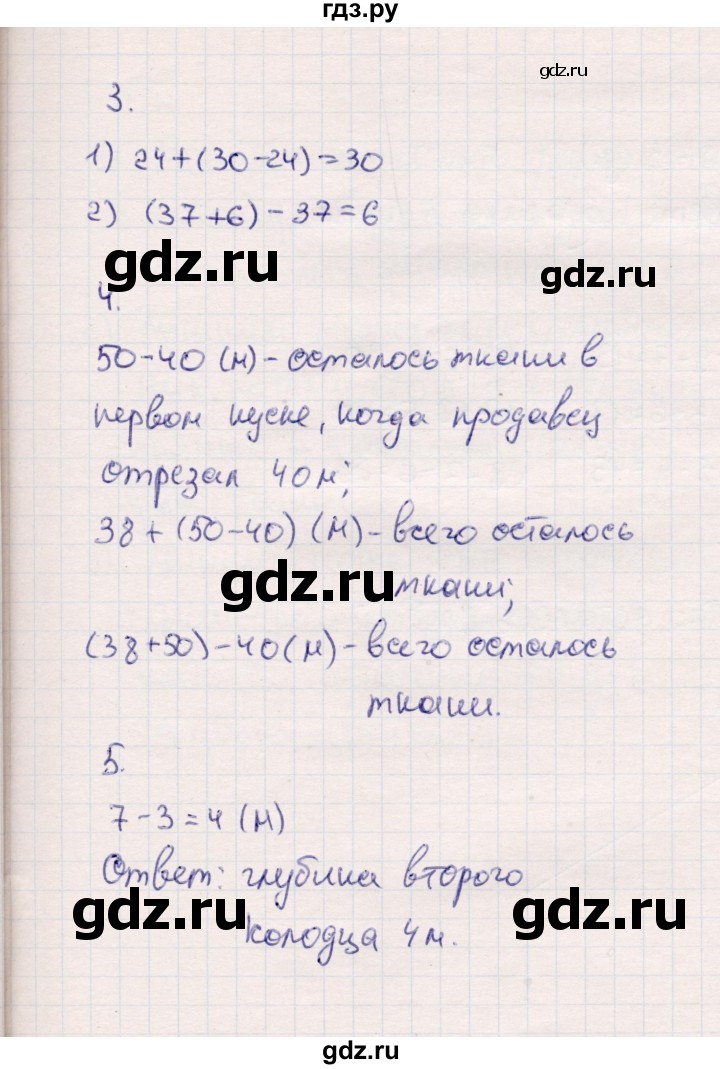 гдз.ру
gdz.ru
3.
1) 24+(30-24)=30
2) (37+6)-37=6
gdz.ru
gdz.ru
4.
50-40 (м)-осталось ткани в
первом куске, когда продавец
отрезал 40м;
38+(50-40) (м)-всего осталось
gdz.ru
ткани;
(38+50)-40(м)-всего осталось
ткани.
5.
7-3=4 (м)
Ответ: глубина второго
gdz.ru
gdz.ru
колодца 4м.
gdz.ru